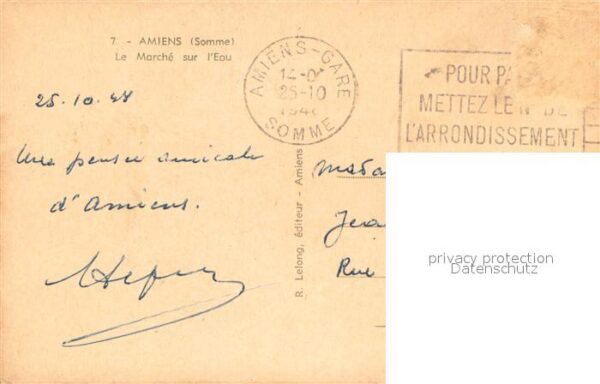 7 - AMIENS (Somme)
Le Marché sur l'Eau
AMIENS-GARE
14-0
25-10
194
SOMME
POUR PA
METTEZ LE N° DE
L'ARRONDISSEMENT
25.10.48
Une pensée amicale
d'Amiens.
R. Lelong, éditeur - Amiens
Mada
Jea
Rue
privacy protection
Datenschutz